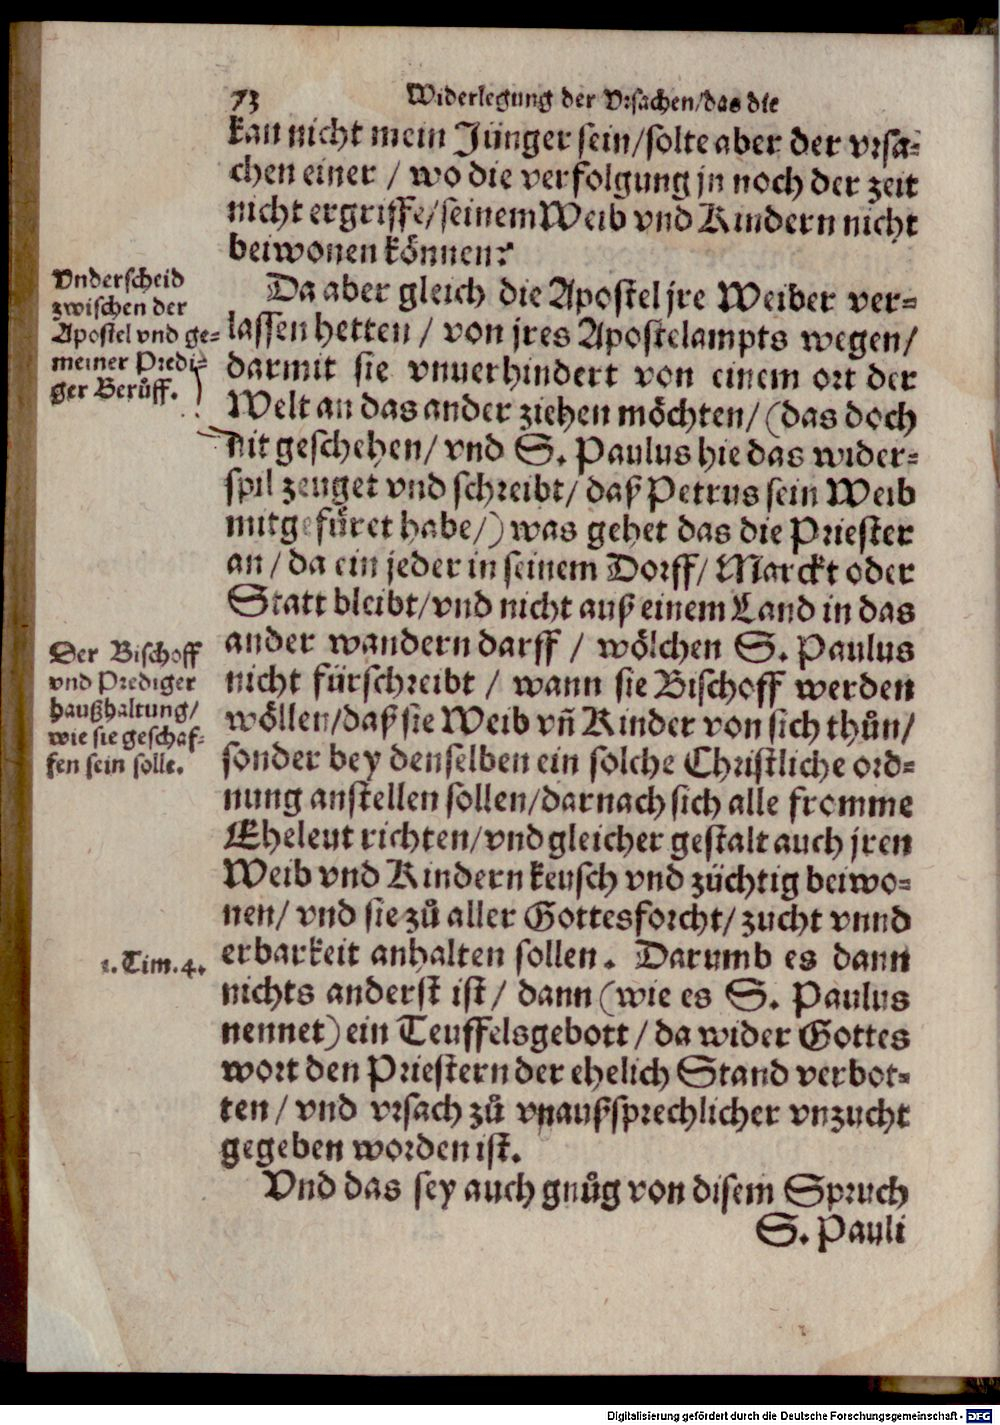 73 Widerlegung der Vrsachen/das die
kan nicht mein Jünger sein/solte aber der vrsa-
chen einer / wo die verfolgung jn noch der zeit
nicht ergriffe/seinem Weib vnd Kindern nicht
beiwonen können?
Vnderscheid
zwischen der
Apostel vnd ge-
meiner Predi-
ger Berůff.
Da aber gleich die Apostel jre Weiber ver-
lassen hetten / von jres Apostelampts wegen/
darmit sie vnuerhindert von einem ort der
Welt an das ander ziehen möchten/(das doch
nit geschehen/ vnd S. Paulus hie das wider-
spil zeuget vnd schreibt/ daß Petrus sein Weib
mitgefůret habe/) was gehet das die Priester
an / da ein jeder in seinem Dorff/ Marckt oder
Statt bleibt/vnd nicht auß einem Land in das
ander wandern darff / wölchen S. Paulus
nicht fürschreibt / wann sie Bischoff werden
wöllen/daß sie Weib vñ Kinder von sich thůn/
sonder bey denselben ein solche Christliche ord-
nung anstellen sollen/darnach sich alle fromme
Eheleut richten/vnd gleicher gestalt auch jren
Weib vnd Kindern keusch vnd züchtig beiwo-
nen/ vnd sie zů aller Gottesforcht/ zucht vnnd
erbarkeit anhalten sollen. Darumb es dann
nichts anderst ist/ dann (wie es S. Paulus
nennet) ein Teuffelsgebott / da wider Gottes
wort den Priestern der ehelich Stand verbot-
ten / vnd vrsach zů vnaußsprechlicher vnzucht
gegeben worden ist.
Der Bischoff
vnd Prediger
haußhaltung/
wie sie geschaf-
fen sein solle.
1. Tim. 4.
Vnd das sey auch gnůg von disem Spruch
S. Pauli
Digitalisierung gefördert durch die Deutsche Forschungsgemeinschaft - DFG